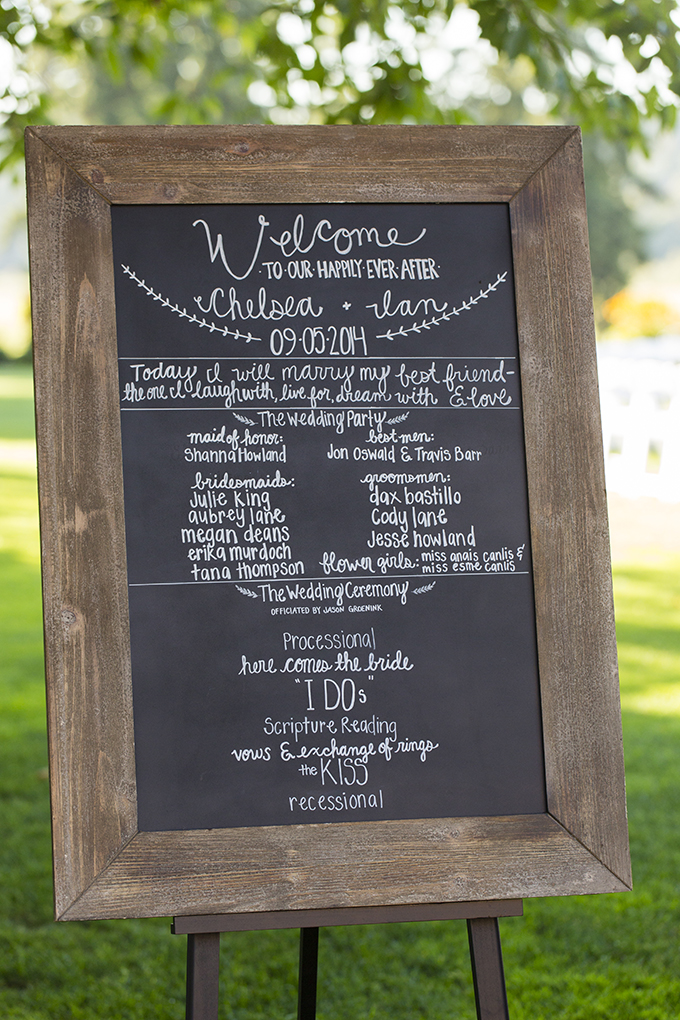 Welcome
TO OUR HAPPILY EVER AFTER
Chelsea + Ian
09·05·2014
Today I will marry my best friend-
the one I laugh with, live for, dream with & love
The Wedding Party
maid of honor:
Shanna Howland
best men:
Jon Oswald & Travis Barr
bridesmaids:
Julie King
aubrey lane
megan deans
erika murdoch
tana thompson
groomsmen:
dax bastillo
Cody lane
Jesse howland
flower girls: miss anais canlis &
miss esme canlis
The Wedding Ceremony
OFFICIATED BY JASON GROENINK
Processional
here comes the bride
"I DOs"
Scripture Reading
vows & exchange of rings
the KISS
recessional